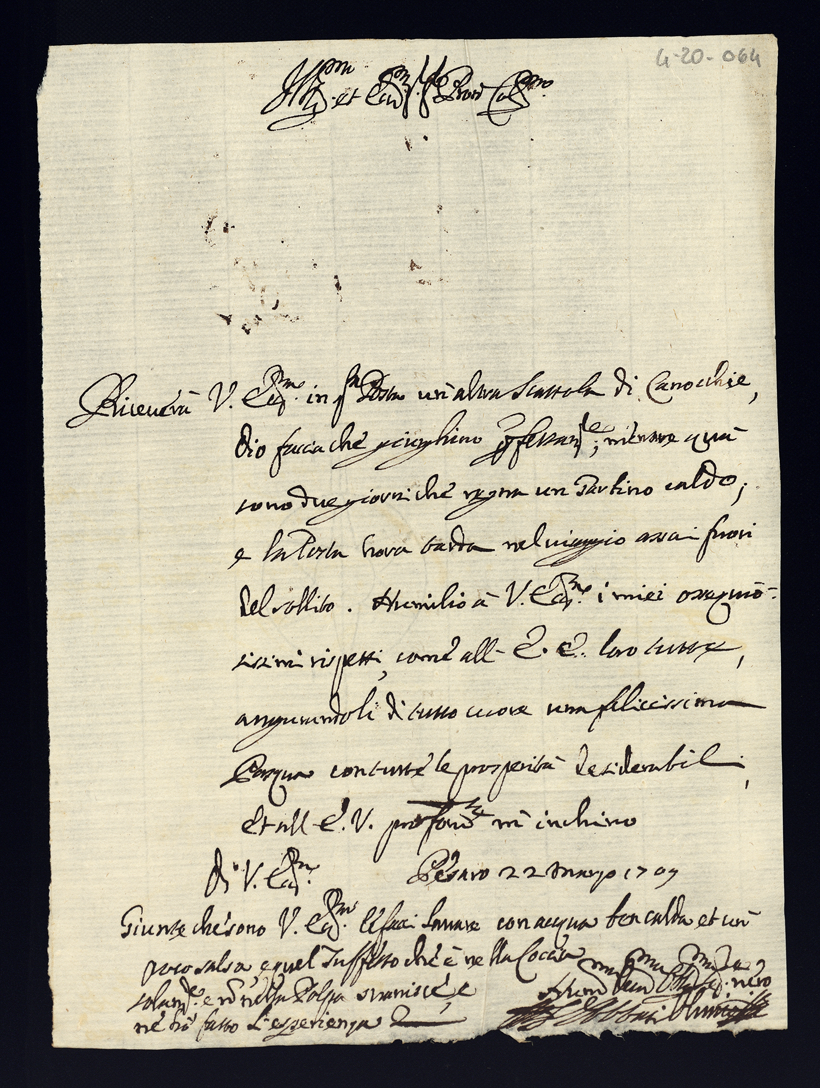 4-20-064
Ill.mo et Ecc.mo
Riceverà V. Ecc.ma in p.nte Posta un'altra Scattola di Canochie,
Dio faccia che giunghino mentre quà
sono due giorni che regna un Garbino caldo;
e la Posta hora tarda nel viaggio assai fuori
del sollito. Humilio à V. Ecc.ma i miei ossequio-
sissimi rispetti, come all' E. E. loro tutte,
augurandoli di tutto cuore una felicissima
Pasqua con tutte le prosperità desiderabili,
et all' E. V. profond.te m'inchino
Di V. Ecc.za
Pesaro 22 Marzo 1709
Giunte che sono V. Ecc.za le facci lavare con acqua ben calda et un
poco salsa, e quel Tuffetto che è nella Coccia
solam.te e nò nella Polpa svanisce, e
nè hò fatto l'esperienza
Hum.